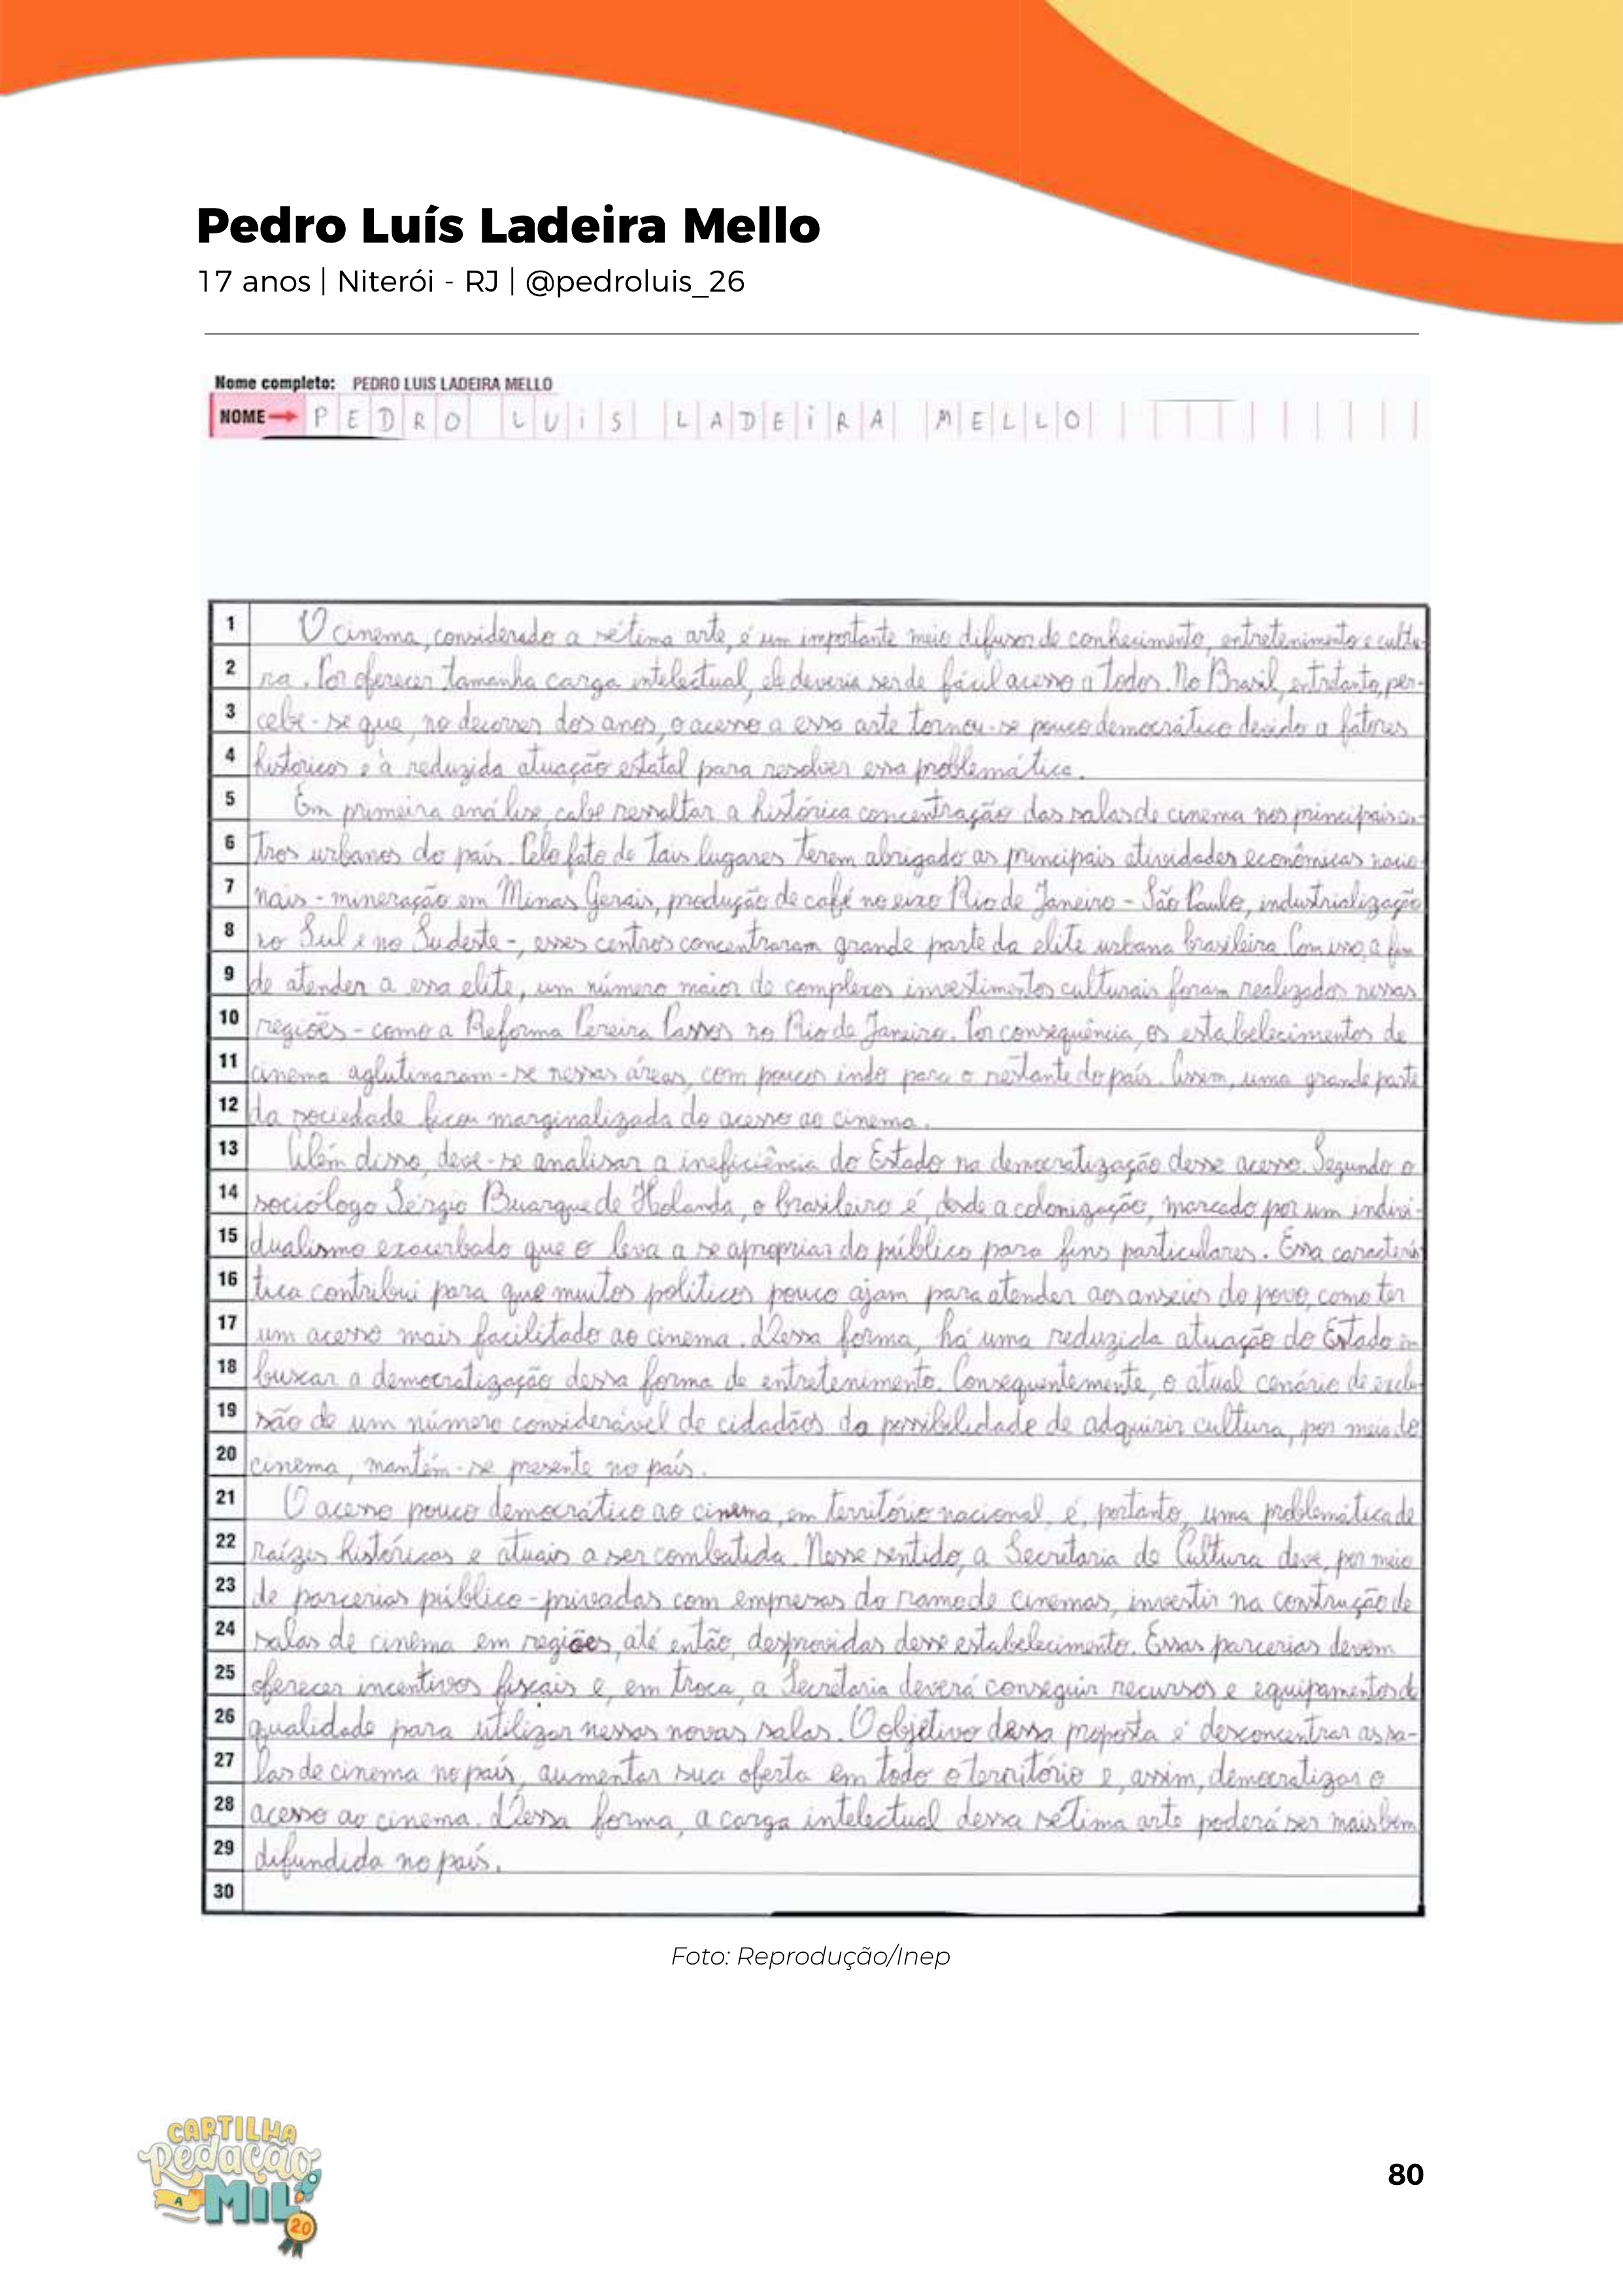 Pedro Luís Ladeira Mello
17 anos | Niterói - RJ | @pedroluis_26
Nome completo: PEDRO LUIS LADEIRA MELLO
NOME PEDRO LUiS LADEiRA MELLO
1 O cinema, considerado a sétima arte, é um importante meio difusor de conhecimento, entretenimento e cultu-
2 ra. Por oferecer tamanha carga intelectual, ele deveria ser de fácil acesso a todos. No Brasil, entretanto, per-
3 cebe-se que, no decorrer dos anos, o acesso a essa arte tornou-se pouco democrático devido a fatores
4 históricos e à reduzida atuação estatal para resolver essa problemática.
5 Em primeira análise, cabe ressaltar a histórica concentração das salas de cinema nos principais cen-
6 tros urbanos do país. Pelo fato de tais lugares terem abrigado as principais atividades econômicas nacio-
7 nais - mineração em Minas Gerais, produção de café no eixo Rio de Janeiro - São Paulo, industrialização
8 no Sul e no Sudeste -, esses centros concentraram grande parte da elite urbana brasileira. Com isso, a fim
9 de atender a essa elite, um número maior de complexos investimentos culturais foram realizados nessas
10 regiões - como a Reforma Pereira Passos no Rio de Janeiro. Por consequência, os estabelecimentos de
11 cinema aglutinaram-se nessas áreas, com poucos indo para o restante do país. Assim, uma grande parte
12 da sociedade ficou marginalizada do acesso ao cinema.
13 Além disso, deve-se analisar a ineficiência do Estado na democratização desse acesso. Segundo o
14 sociólogo Sérgio Buarque de Holanda, o brasileiro é, desde a colonização, marcado por um indivi-
15 dualismo exacerbado que o leva a se apropriar do público para fins particulares. Essa caracterís-
16 tica contribui para que muitos políticos pouco ajam para atender aos anseios do povo, como ter
17 um acesso mais facilitado ao cinema. Dessa forma, há uma reduzida atuação do Estado em
18 buscar a democratização dessa forma de entretenimento. Consequentemente, o atual cenário de exclu-
19 são de um número considerável de cidadãos da possibilidade de adquirir cultura, por meio do
20 cinema, mantém-se presente no país.
21 O acesso pouco democrático ao cinema, em território nacional, é, portanto, uma problemática de
22 raízes históricas e atuais a ser combatida. Nesse sentido, a Secretaria de Cultura deve, por meio
23 de parcerias público-privadas com empresas do ramo de cinemas, investir na construção de
24 salas de cinema em regiões, até então, desprovidas desse estabelecimento. Essas parcerias devem
25 oferecer incentivos fiscais e, em troca, a Secretaria deverá conseguir recursos e equipamentos de
26 qualidade para utilizar nessas novas salas. O objetivo dessa proposta é desconcentrar as sa-
27 las de cinema no país, aumentar sua oferta em todo o território e, assim, democratizar o
28 acesso ao cinema. Dessa forma, a carga intelectual dessa sétima arte poderá ser mais bem
29 difundida no país.
30
Foto: Reprodução/Inep
CARTILHA
Redação
A
MIL
20
80